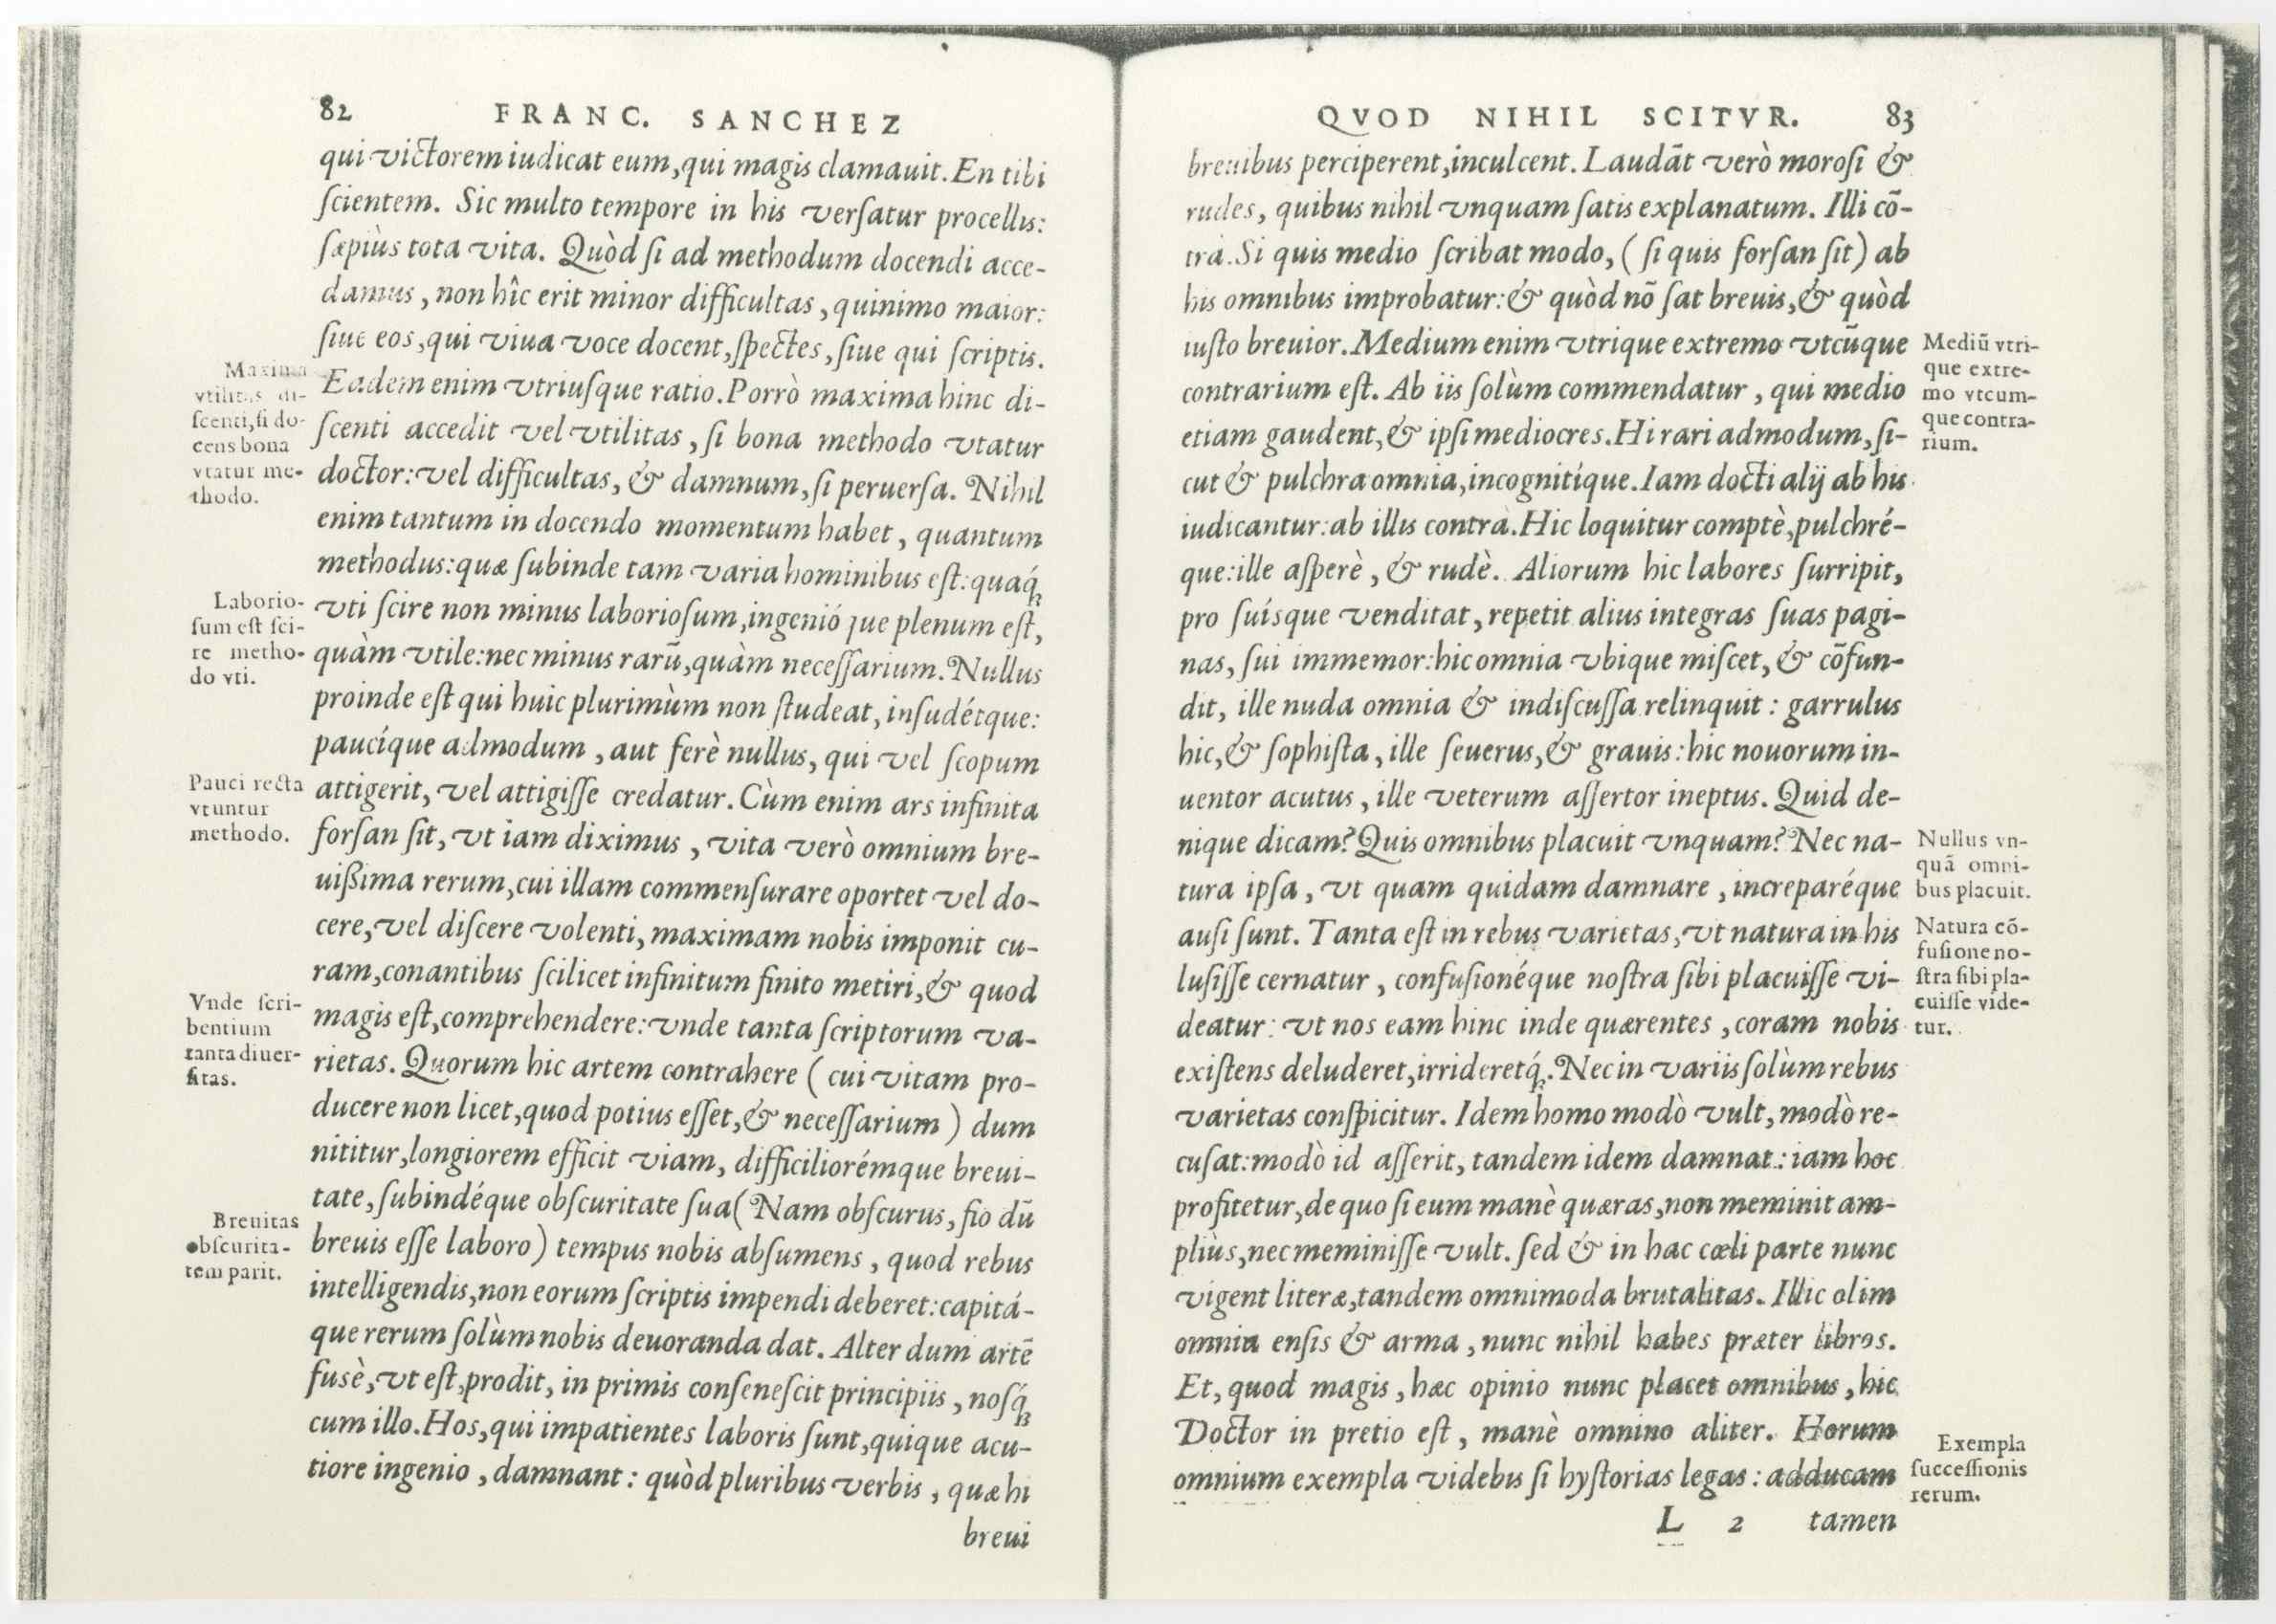 82 FRANC. SANCHEZ
qui victorem iudicat eum, qui magis clamauit. En tibi
ſcientem. Sic multo tempore in his verſatur procellis:
ſæpiùs tota vita. Quòd ſi ad methodum docendi acce-
damus, non hîc erit minor difficultas, quinimo maior:
ſiue eos, qui viua voce docent, ſpectes, ſiue qui ſcriptis.
Eadem enim vtriuſque ratio. Porrò maxima hinc di-
ſcenti accedit vel vtilitas, ſi bona methodo vtatur
doctor: vel difficultas, & damnum, ſi peruerſa. Nihil
enim tantum in docendo momentum habet, quantum
methodus: quæ ſubinde tam varia hominibus eſt: quaq́;
vti ſcire non minus laborioſum, ingenióque plenum eſt,
quàm vtile: nec minus rarũ, quàm neceſſarium. Nullus
proinde eſt qui huic plurimùm non ſtudeat, inſudétque:
paucíque admodum, aut ferè nullus, qui vel ſcopum
attigerit, vel attigiſſe credatur. Cùm enim ars infinita
forſan ſit, vt iam diximus, vita verò omnium bre-
uißima rerum, cui illam commenſurare oportet vel do-
cere, vel diſcere volenti, maximam nobis imponit cu-
ram, conantibus ſcilicet infinitum finito metiri, & quod
magis eſt, comprehendere: vnde tanta ſcriptorum va-
rietas. Quorum hic artem contrahere (cui vitam pro-
ducere non licet, quod potius eſſet, & neceſſarium) dum
nititur, longiorem efficit viam, difficiliorémque breui-
tate, ſubindéque obſcuritate ſua (Nam obſcurus, fio dũ
breuis eſſe laboro) tempus nobis abſumens, quod rebus
intelligendis, non eorum ſcriptis impendi deberet: capitá-
que rerum ſolùm nobis deuoranda dat. Alter dum artẽ
fusè, vt eſt, prodit, in primis conſeneſcit principiis, noſq́;
cum illo. Hos, qui impatientes laboris ſunt, quique acu-
tiore ingenio, damnant: quòd pluribus verbis, quæ hi
breui
Maxima
vtilitas di-
ſcenti, ſi do-
cens bona
vtatur me-
thodo.
Laborio-
ſum eſt ſci-
re metho-
do vti.
Pauci recta
vtuntur
methodo.
Vnde ſcri-
bentium
tanta diuer-
ſitas.
Breuitas
obſcurita-
tem parit.
QVOD NIHIL SCITVR. 83
breuibus perciperent, inculcent. Laudãt verò moroſi &
rudes, quibus nihil vnquam ſatis explanatum. Illi cõ-
trà. Si quis medio ſcribat modo, (ſi quis forſan ſit) ab
his omnibus improbatur: & quòd nõ ſat breuis, & quòd
iuſto breuior. Medium enim vtrique extremo vtcũque
contrarium eſt. Ab iis ſolùm commendatur, qui medio
etiam gaudent, & ipſi mediocres. Hi rari admodum, ſi-
cut & pulchra omnia, incognitíque. Iam docti alij ab his
iudicantur: ab illis contrà. Hic loquitur comptè, pulchré-
que: ille aſperè, & rudè. Aliorum hic labores ſurripit,
pro ſuíſque venditat, repetit alius integras ſuas pagi-
nas, ſui immemor: hic omnia vbique miſcet, & cõfun-
dit, ille nuda omnia & indiſcuſſa relinquit: garrulus
hic, & ſophiſta, ille ſeuerus, & grauis: hic nouorum in-
uentor acutus, ille veterum aſſertor ineptus. Quid de-
nique dicam? Quis omnibus placuit vnquam? Nec na-
tura ipſa, vt quam quidam damnare, increparéque
auſi ſunt. Tanta eſt in rebus varietas, vt natura in his
luſiſſe cernatur, confuſionéque noſtra ſibi placuiſſe vi-
deatur: vt nos eam hinc inde quærentes, coram nobis
exiſtens deluderet, irrideretq́;. Nec in variis ſolùm rebus
varietas conſpicitur. Idem homo modò vult, modò re-
cuſat: modò id aſſerit, tandem idem damnat: iam hoc
profitetur, de quo ſi eum manè quæras, non meminit am-
pliùs, nec meminiſſe vult. ſed & in hac cœli parte nunc
vigent literæ, tandem omnimoda brutalitas. Illic olim
omnia enſis & arma, nunc nihil habes præter libros.
Et, quod magis, hæc opinio nunc placet omnibus, hic
Doctor in pretio eſt, manè omnino aliter. Horum
omnium exempla videbis ſi hyſtorias legas: adducam
L 2 tamen
Mediũ vtri-
que extre-
mo vtcum-
que contra-
rium.
Nullus vn-
quã omni-
bus placuit.
Natura cõ-
fuſione no-
ſtra ſibi pla-
cuiſſe vide-
tur.
Exempla
ſucceſſionis
rerum.